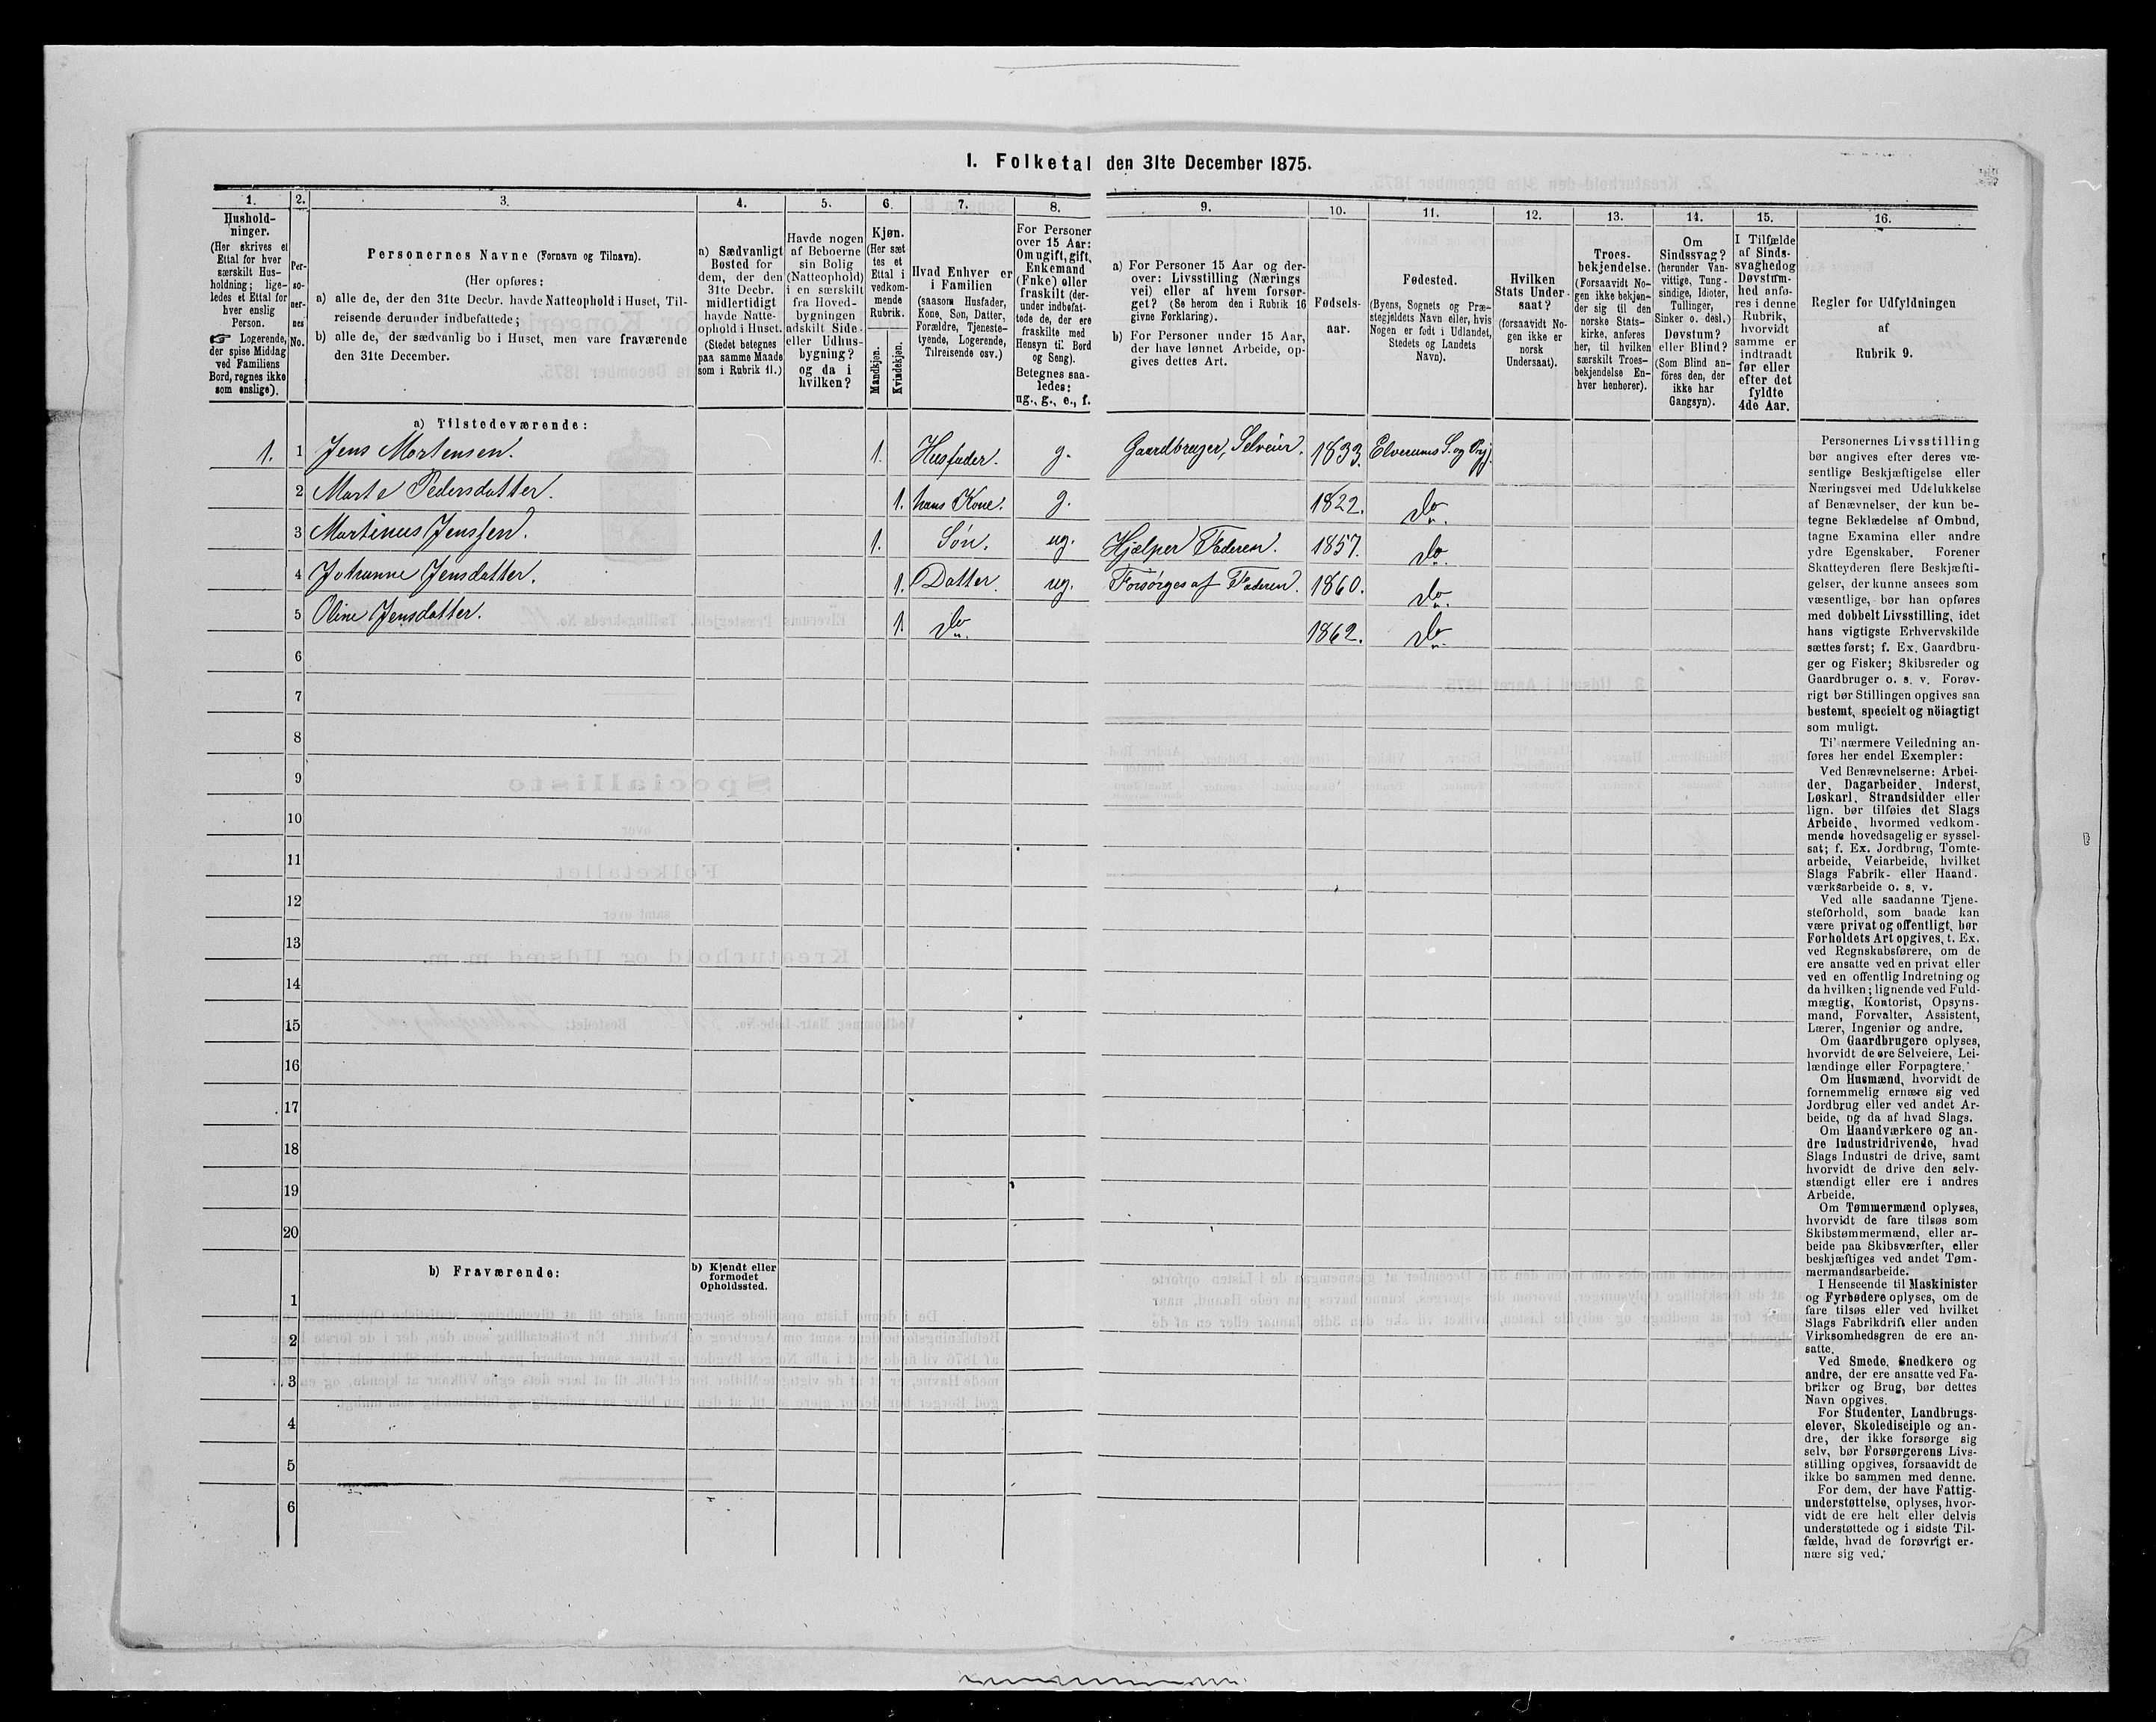 I. Folketal den 31te December 1875.
1.
Hushold-
ninger.
(Her skrives et
Ettal for hver
særskilt Hus-
holdning; lige-
ledes et Ettal for
hver enslig
Person.
☞ Logerende,
der spise Middag
ved Familiens
Bord, regnes ikke
som enslige).
2.
Per-
so-
ner-
nes
No.
3.
Personernes Navne (Fornavn og Tilnavn).
(Her opføres:
a) alle de, der den 31te Decbr. havde Natteophold i Huset, Til-
reisende derunder indbefattede;
b) alle de, der sædvanlig bo i Huset, men vare fraværende
den 31te December.
4.
a) Sædvanligt
Bosted for
dem, der den
31te Decbr.
midlertidigt
havde Natte-
ophold i Huset.
(Stedet betegnes
paa samme Maade
som i Rubrik 11.)
5.
Havde nogen
af Beboerne
sin Bolig
(Natteophold)
i en særskilt
fra Hoved-
bygningen
adskilt Side-
eller Udhus-
bygning?
og da i
hvilken?
6.
Kjøn.
(Her sæt
tes et
Ettal i
vedkom-
mende
Rubrik.
Mandkjøn.
Kvindekjøn.
7.
Hvad Enhver er
i Familien
(saasom Husfader,
Kone, Søn, Datter,
Forældre, Tjeneste-
tyende, Logerende,
Tilreisende osv.)
8.
For Personer
over 15 Aar:
Om ugift, gift,
Enkemand
(Enke) eller
fraskilt (der-
under indbefat-
tede de, der ere
fraskilte med
Hensyn til Bord
og Seng).
Betegnes saa-
ledes:
ug., g., e., f.
9.
a) For Personer 15 Aar og der-
over: Livsstilling (Nærings
vei) eller af hvem forsør-
get? (Se herom den i Rubrik 16
givne Forklaring).
b) For Personer under 15 Aar,
der have lønnet Arbeide, op-
gives dettes Art.
10.
Fødsels-
aar.
11.
Fødested.
(Byens, Sognets og Præ-
stegjeldets Navn eller, hvis
Nogen er født i Udlandet,
Stedets og Landets
Navn).
12.
Hvilken
Stats Under-
saat?
(forsaavidt No-
gen ikke er
norsk
Undersaat).
13.
Troes-
bekjendelse.
(Forsaavidt No-
gen ikke bekjen-
der sig til den
norske Stats-
kirke, anføres
her, til hvilken
særskilt Troes-
bekjendelse En-
hver henhører).
14.
Om
Sindssvag?
(herunder Van-
vittige, Tung-
sindige, Idioter,
Tullinger,
Sinker o. desl.)
Døvstum?
eller Blind?
(Som Blind an-
föres den, der
ikke har
Gangsyn).
15.
I Tilfælde
af Sinds-
svaghed og
Døvstum-
hed anfø-
res i denne
Rubrik,
hvorvidt
samme er
indtraadt
før eller
efter det
fyldte
4de Aar.
16.
Regler for Udfyldningen
af
Rubrik 9.
a) Tilstedeværende:
1. 1 Jens Mortensen. 1. Husfader. g. Gaardbruger, Selveier. 1833. Elverums S. og Prgj.
2 Marte Pedersdatter. 1. hans Kone. g. 1822. do
3 Martinus Jenssen. 1. Søn. ug. Hjælper Faderen. 1857. do
4 Johanne Jensdatter. 1. Datter. ug. Forsørges af Faderen. 1860. do
5 Oline Jensdatter. 1. do 1862. do
6
7
8
9
10
11
12
13
14
15
16
17
18
19
20
b) Fraværende:
b) Kjendt eller
formodet
Opholdssted.
1
2
3
4
5
6
Personernes Livsstilling
bør angives efter deres væ-
sentlige Beskjæftigelse eller
Næringsvei med Udelukkelse
af Benævnelser, der kun be-
tegne Beklædelse af Ombud,
tagne Examina eller andre
ydre Egenskaber. Forener
Skatteyderen flere Beskjæfti-
gelser, der kunne ansees som
væsentlige, bør han opføres
med dobbelt Livsstilling, idet
hans vigtigste Erhvervskilde
sættes først; f. Ex. Gaardbru-
ger og Fisker; Skibsreder og
Gaardbruger o. s. v. Forøv-
rigt bør Stillingen opgives saa
bestemt, specielt og nöiagtigt
som muligt.
Til nærmere Veiledning an-
føres her endel Exempler:
Ved Benævnelserne: Arbei-
der, Dagarbeider, Inderst,
Løskarl, Strandsidder eller
lign. bør tilføies det Slags
Arbeide, hvormed vedkom-
mende hovedsagelig er syssel-
sat; f. Ex. Jordbrug, Tomte-
arbeide, Veiarbeide, hvilket
Slags Fabrik- eller Haand-
værksarbeide o. s. v.
Ved alle saadanne Tjene-
steforhold, som baade kan
være privat og offentligt, bør
Forholdets Art opgives, t. Ex.
ved Regnskabsførere, om de
ere ansatte ved en privat eller
ved en offentlig Indretning og
da hvilken; lignende ved Fuld-
mægtig, Kontorist, Opsyns-
mand, Forvalter, Assistent,
Lærer, Ingeniør og andre.
Om Gaardbrugere oplyses,
hvorvidt de ere Selveiere, Lei-
lændinge eller Forpagtere.
Om Husmænd, hvorvidt de
fornemmelig ernære sig ved
Jordbrug eller ved andet Ar-
beide, og da af hvad Slags.
Om Haandværkere og an-
dre Industridrivende, hvad
Slags Industri de drive, samt
hvorvidt de drive den selv-
stændigt eller ere i andres
Arbeide.
Om Tømmermænd oplyses,
hvorvidt de fare tilsøs som
Skibstømmermænd, eller ar-
beide paa Skibsværfter, eller
beskjæftiges ved andet Tøm-
mermandsarbeide.
I Henseende til Maskinister
og Fyrbødere oplyses, om de
fare tilsøs eller ved hvilket
Slags Fabrikdrift eller anden
Virksomhedsgren de ere an-
satte.
Ved Smede, Snedkere og
andre, der ere ansatte ved Fa-
briker og Brug, bør dettes
Navn opgives.
For Studenter, Landbrugs-
elever, Skoledisciple og an-
dre, der ikke forsørge sig
selv, bør Forsørgerens Livs-
stilling opgives, forsaavidt de
ikke bo sammen med denne.
For dem, der have Fattig-
understøttelse, oplyses, hvor-
vidt de ere helt eller delvis
understøttede og i sidste Til-
fælde, hvad de forøvrigt er-
nære sig ved.